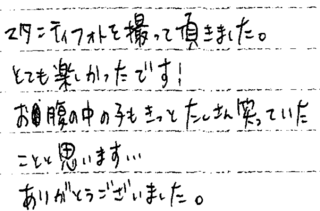 マタニティフォトを撮って頂きました。
とても楽しかったです!
お腹の中の子もきっとたくさん笑っていた
ことと思います…
ありがとうございました。